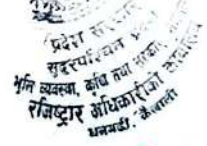 प्रदेश सरकार
सुदूरपश्चिम प्रदेश
भूमि व्यवस्था, कृषि तथा सहकारी
रजिष्ट्रार अधिकारीको कार्यालय
धनगढी, कैलाली